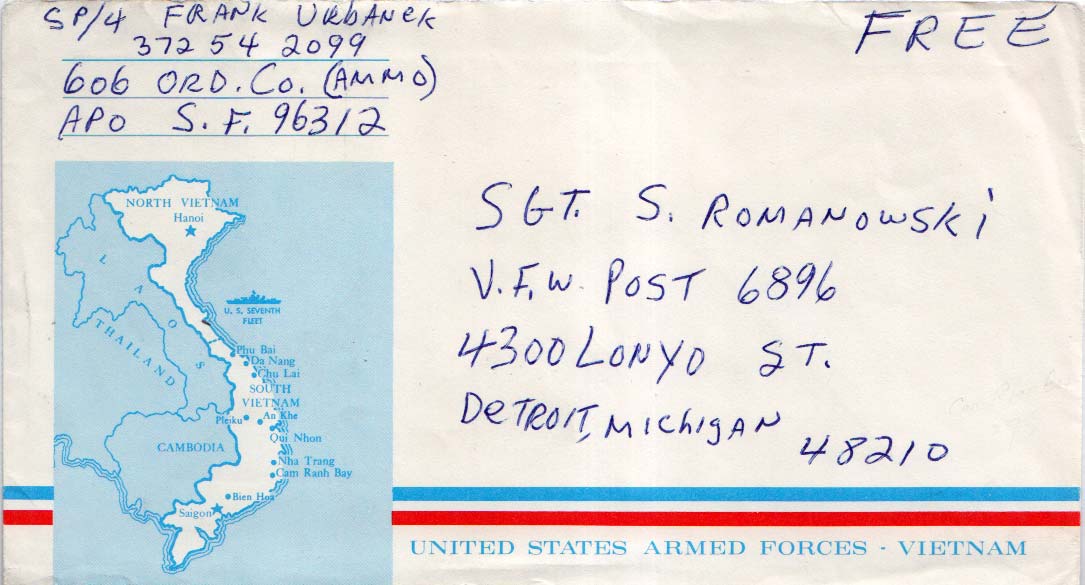 SP/4 FRANK URBANEK
372 54 2099
606 ORD. CO. (AMMO)
APO S.F. 96312
FREE
SGT. S. ROMANOWSKI
V.F.W. POST 6896
4300 LONYO ST.
DETROIT, MICHIGAN
48210
NORTH VIETNAM
Hanoi
LAOS
THAILAND
U. S. SEVENTH
FLEET
Phu Bai
Da Nang
Chu Lai
SOUTH
VIETNAM
Pleiku
An Khe
Qui Nhon
CAMBODIA
Nha Trang
Cam Ranh Bay
Bien Hoa
Saigon
UNITED STATES ARMED FORCES - VIETNAM